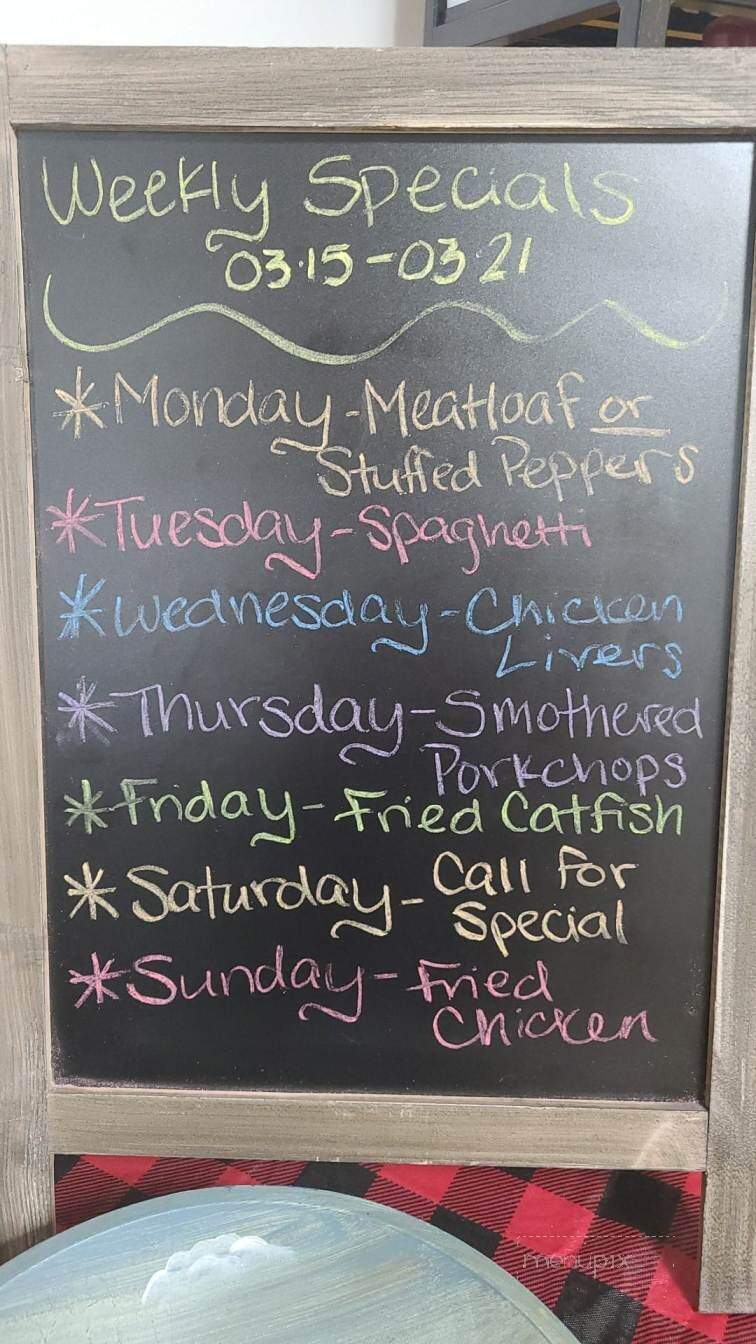 Weekly Specials
03.15-03 21
*Monday-Meatloaf or
Stuffed Peppers
*Tuesday-Spaghetti
*Wednesday-Chicken
Livers
*Thursday-Smothered
Porkchops
*Friday-Fried Catfish
*Saturday-Call for
Special
*Sunday-Fried
Chicken
menupix